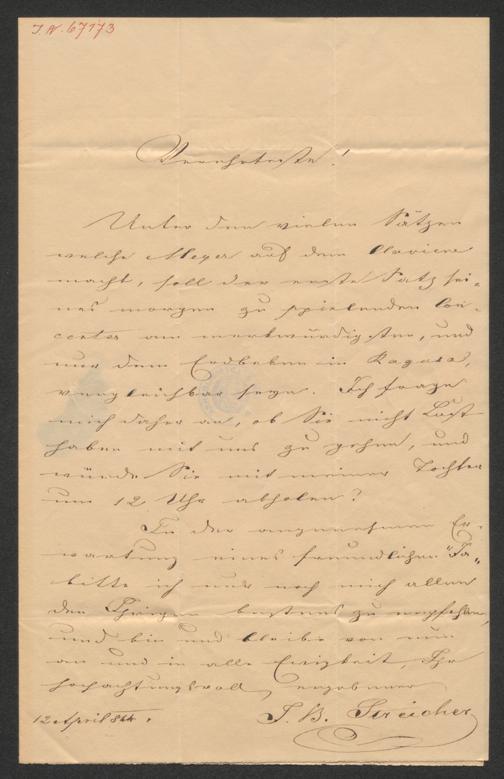 I.N. 67173
Verehrteste!
Unter den vielen Sätzen
welche Meyer auf dem Claviere
macht, soll der erste Satz sei-
nes morgen zu spielenden Con-
certes am merkwürdigsten, und
nur dem Erdbeben in Ragusa,
vergleichbar seyn. Ich frage
mich daher an, ob Sie nicht Lust
haben mit uns zu gehen, und
würde Sie mit meiner Tochter
um 12 Uhr abholen?
In der angenehmen Er-
wartung eines freundlichen "Ja"
bitte ich nur noch mich allen
den Ihrigen bestens zu empfehlen,
und bin und bleibe von nun
an und in alle Ewigkeit, Ihr
hochachtungsvoll ergebener
12 April 844.
J. B. Streicher